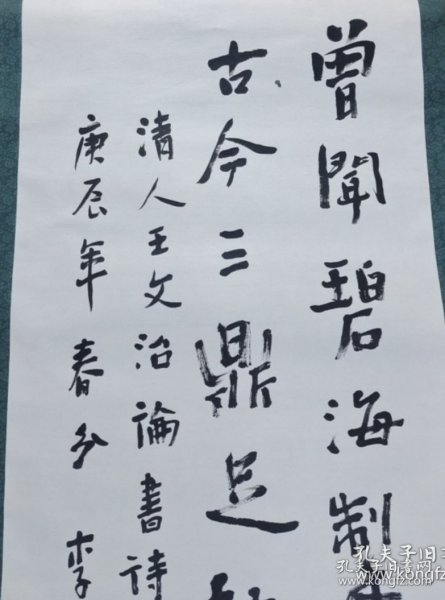 曾聞碧海制
古今三鼎足
清人王文治論書詩
庚辰年春分 李
孔夫子旧书网
www.kongfz.